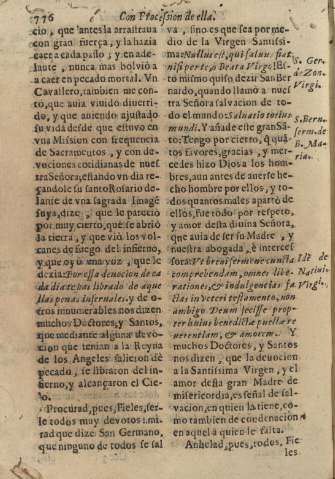 776 Con Procession de ella.
cio, que antes la arrastraua
con gran fuerça, y la hazia
caer a cada passo, y en ade-
lante, nunca mas bolviò a
a caer en pecado mortal. Vn
Cavallero, tambien me con-
tò, que auia viuido diuerti-
do, y que auiendo ajustado
su vida desde que estuvo en
vna Mission con frequencia
de Sacramentos, y con de-
vociones cotidianas de nues-
tra Señora, estando vn dia re-
zandole su santo Rosario de-
lante de vna sagrada Image
suya, dize, que le pareciò
por muy cierto, que se abriò
la tierra, y que viò los vol-
canes de fuego del infierno,
y que oyò vna voz, que le
dezia: Por essa deuocion de ca-
da dia te has librado de aque-
llas penas infernales. y de o-
tros innumerables nos dizen
muchos Doctores, y Santos,
que mediante alguna devo-
cion que tenian a la Reyna
de los Angeles salieron de
pecado, se libraron del in-
fierno, y alcançaron el Cie-
lo.
Procurad, pues, Fieles, ser-
le todos muy devotos: mi-
rad que dize San Germano,
que ninguno de todos se sal
va, sino es que sea por me-
dio de la Virgen Santissi-
ma: Nullus est, qui salvus fiat,
nisi per te, ô Beata Virgo. Es lo
mismo quiso dezir San Ber-
nardo, quando llamò a nues
tra Señora salvacion de to-
do el mundo: Saluatio totius
mundi. Y añade este gran Sã-
to: Tengo por cierto, q̃ quã-
tos favores, gracias, y mer-
cedes hizo Dios a los hom-
bres, aun antes de auerse he-
cho hombre por ellos, y to-
dos quantos males apartò de
ellos, fue todo por respeto,
y amor desta diuina Señora,
que auia de ser su Madre, y
nuestra abogada, è interces
sora:
comprehendam, omnes libe-
rationes, & indulgencias fa-
ctas in veteri testamento, non
ambigo Deum fecisse prop-
ter huius benedictæ puellæ re
uerentiam, & amorem. Y
muchos Doctores, y Santos
nos dizen, que la deuocion
a la Santissima Virgen, y el
amor desta gran Madre de
misericordia, es señal de sal-
vacion, en quien la tiene, co-
mo tambien de condenacion
en aquel a quien le falta.
Anhelad, pues, todos, Fie
les
S. Ger.
d. Zon.
Virgi.
S. Beru.
serm. de
B. Ma-
ria.
Idẽ de
Natiui.
Virgi.